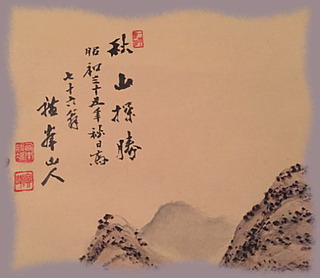 秋山探勝
昭和三十五年秋日寫
七十六翁
峯山人